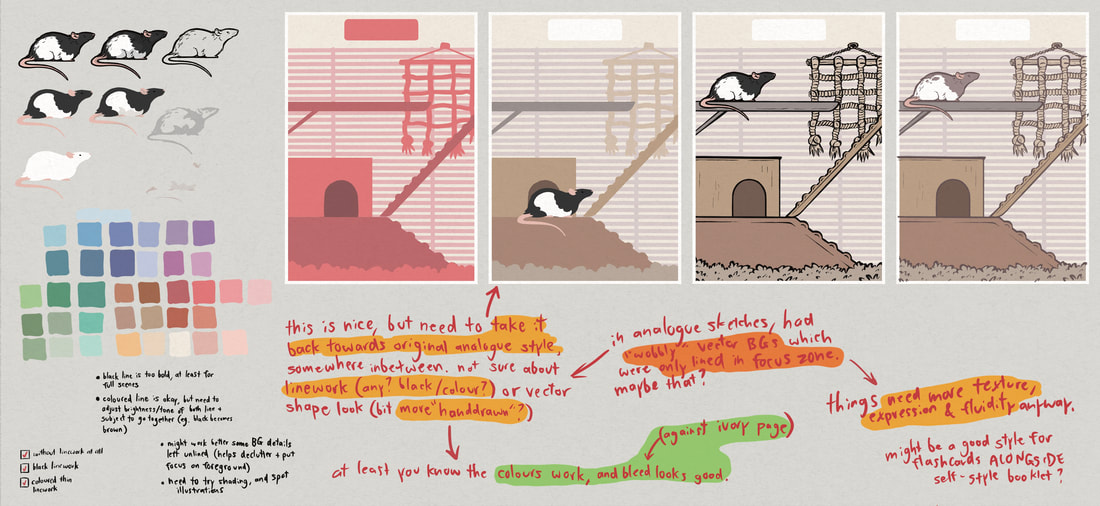 • black line is too bold, at least for
full scenes
• coloured line is okay, but need to
adjust brightness/tone of both line +
subject to go together (eg. black becomes
brown)
• might work better some BG details
left unlined (helps declutter + put
focus on foreground)
• need to try shading, and spot
illustrations
without linework at all
black linework
coloured thin
linework
this is nice, but need to take it
back towards original analogue style,
somewhere inbetween. not sure about
linework (any? black/colour?) or vector
shape look (bit more "handdrawn"?)
in analogue sketches, had
"wobbly" vector BGs which
were only lined in focus zone.
maybe that?
things need more texture,
expression & fluidity anyway.
might be a good style for
flashcards ALONGSIDE
self-style booklet?
(against ivory page)
at least you know the colours work, and bleed looks good.